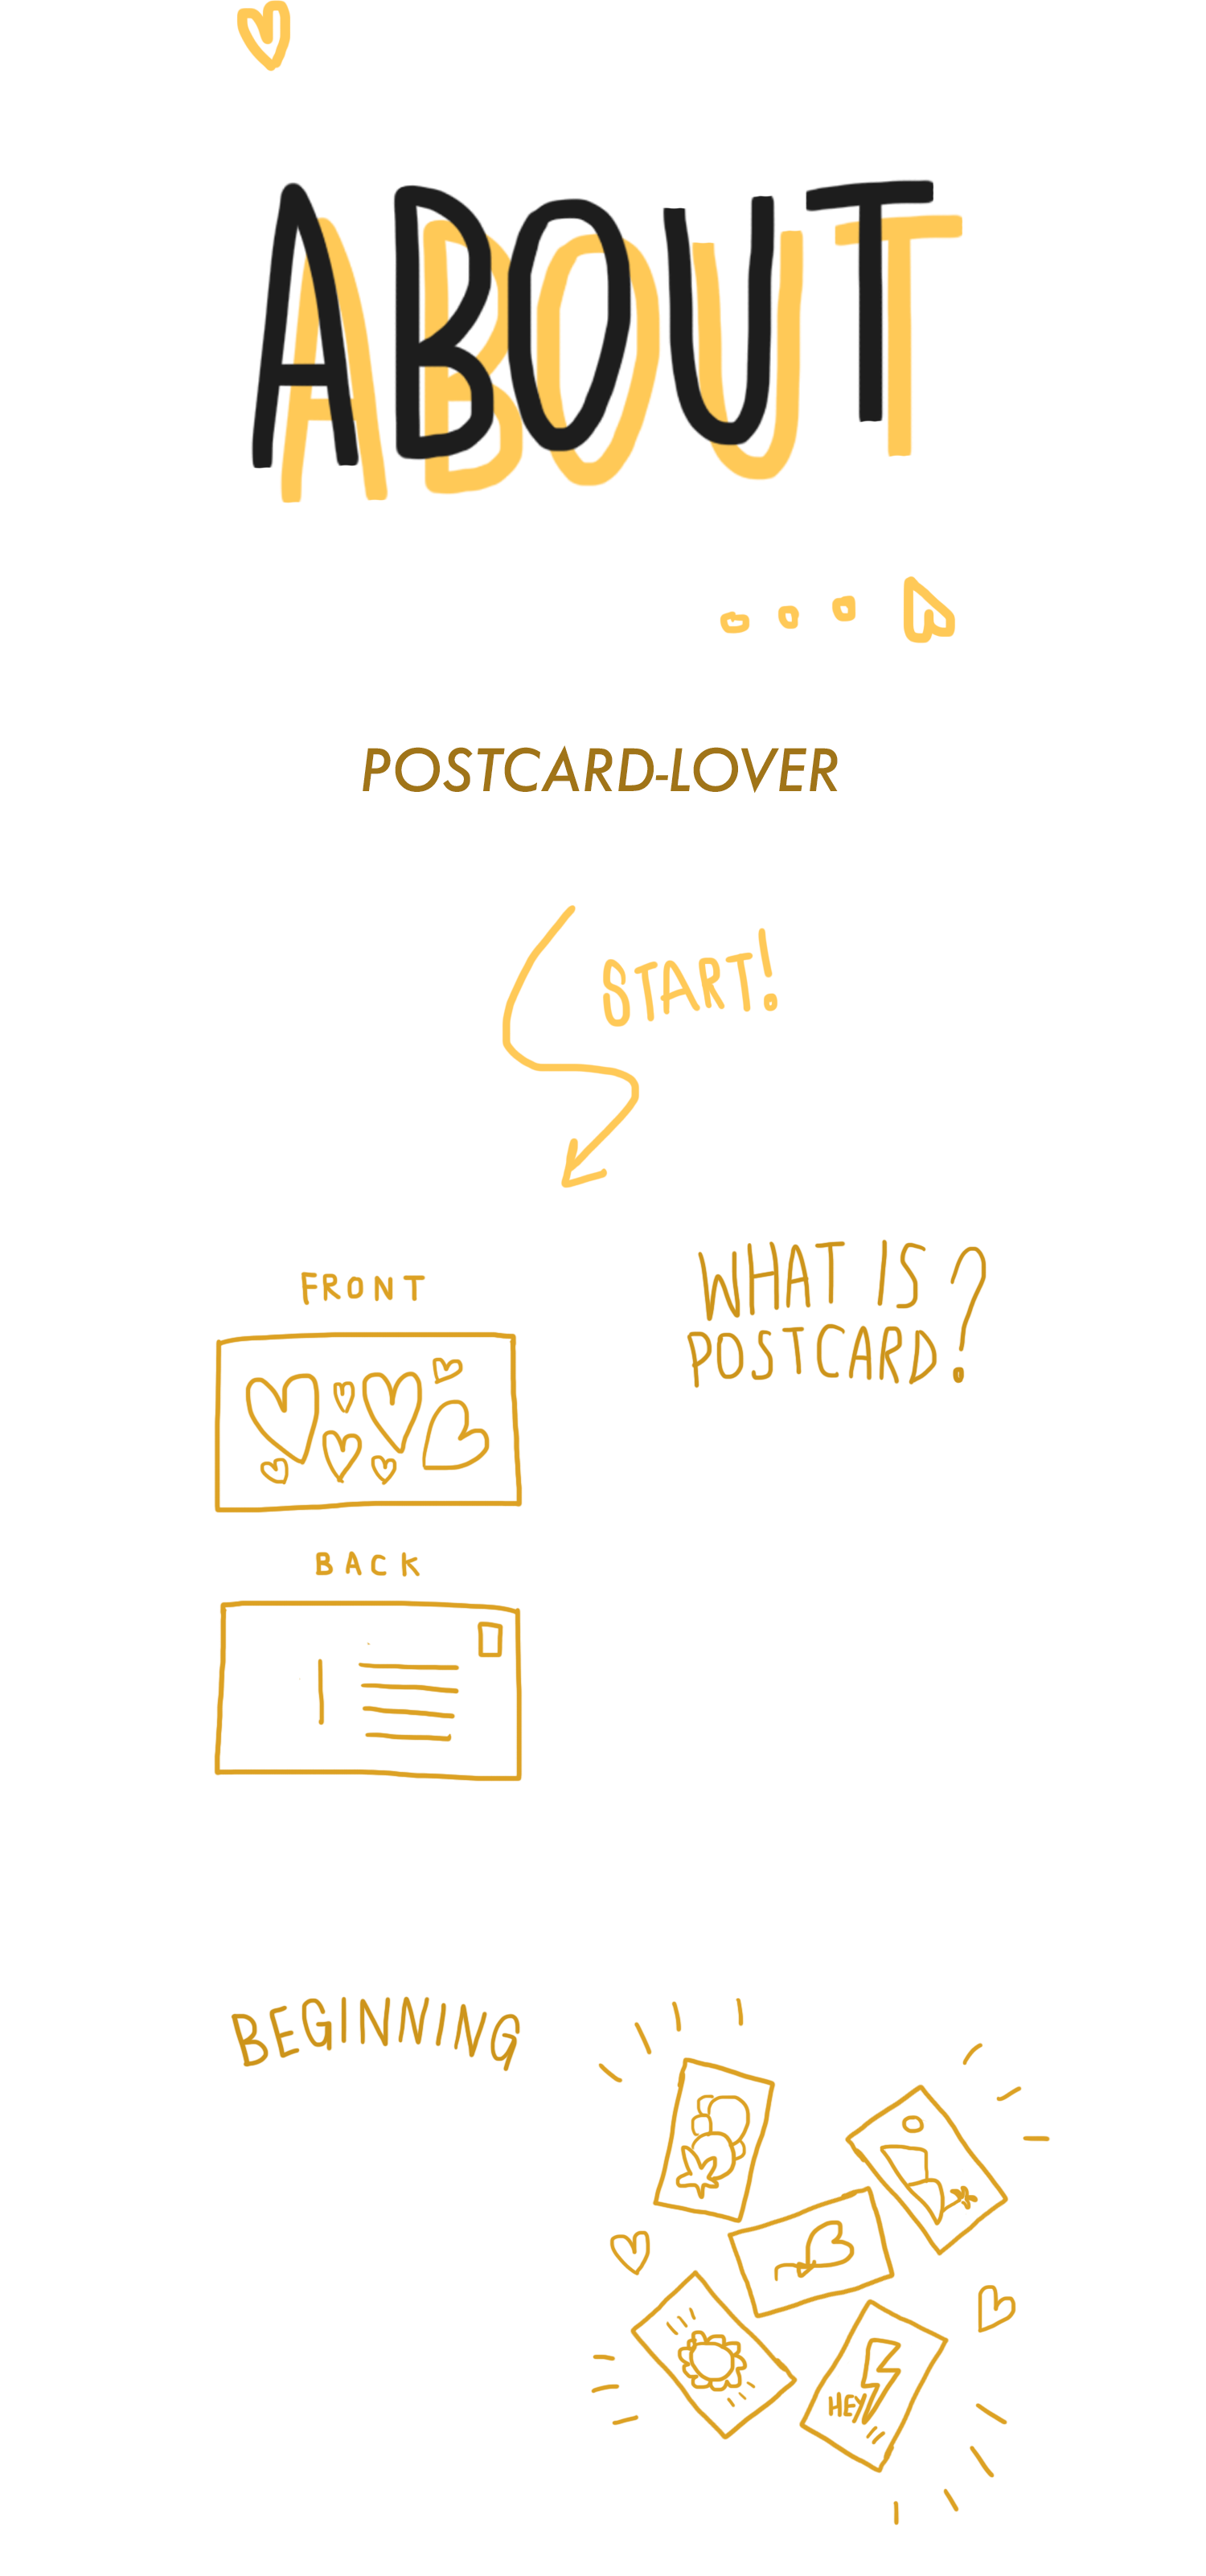 ABOUT
POSTCARD-LOVER
START!
FRONT
WHAT IS
POSTCARD?
BACK
BEGINNING
HEY